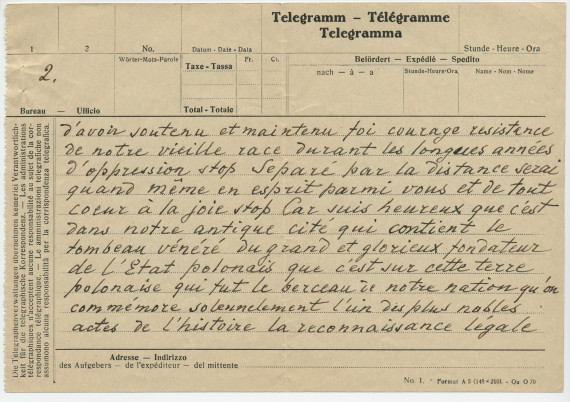 Telegramm — Télégramme
Telegramma
1
2
No.
Wörter-Mots-Parole
Datum - Date - Data
Fr.
Ct.
Taxe - Tassa
Total - Totale
Stunde - Heure - Ora
Befördert — Expédié — Spedito
nach — à — a
Stunde-Heure-Ora
Name - Nom - Nome
2.
Bureau — Ufficio
d'avoir soutenu et maintenu foi courage resistance
de notre vieille race durant les longues années
d'oppression stop Separé par la distance serai
quand même en esprit parmi vous et de tout
coeur à la joie stop Car suis heureux que c'est
dans notre antique cite qui contient le
tombeau vénéré du grand et glorieux fondateur
de l'Etat polonais que c'est sur cette terre
polonaise qui fut le berceau de notre nation qu'on
commémore solennelement l'un des plus nobles
actes de l'histoire la reconnaissance légale
Die Telegraphenverwaltungen übernehmen keinerlei Verantwortlich-
keit für die telegraphische Korrespondenz. — Les administrations
télégraphiques n'acceptent aucune responsabilité au sujet de la cor-
respondance télégraphique. — Le amministrazioni telegrafiche non
assumono alcuna responsabilità per la corrispondenza telegrafica.
Adresse — Indirizzo
des Aufgebers — de l'expéditeur — del mittente
No. 1. * Format A 5 (148 × 210).